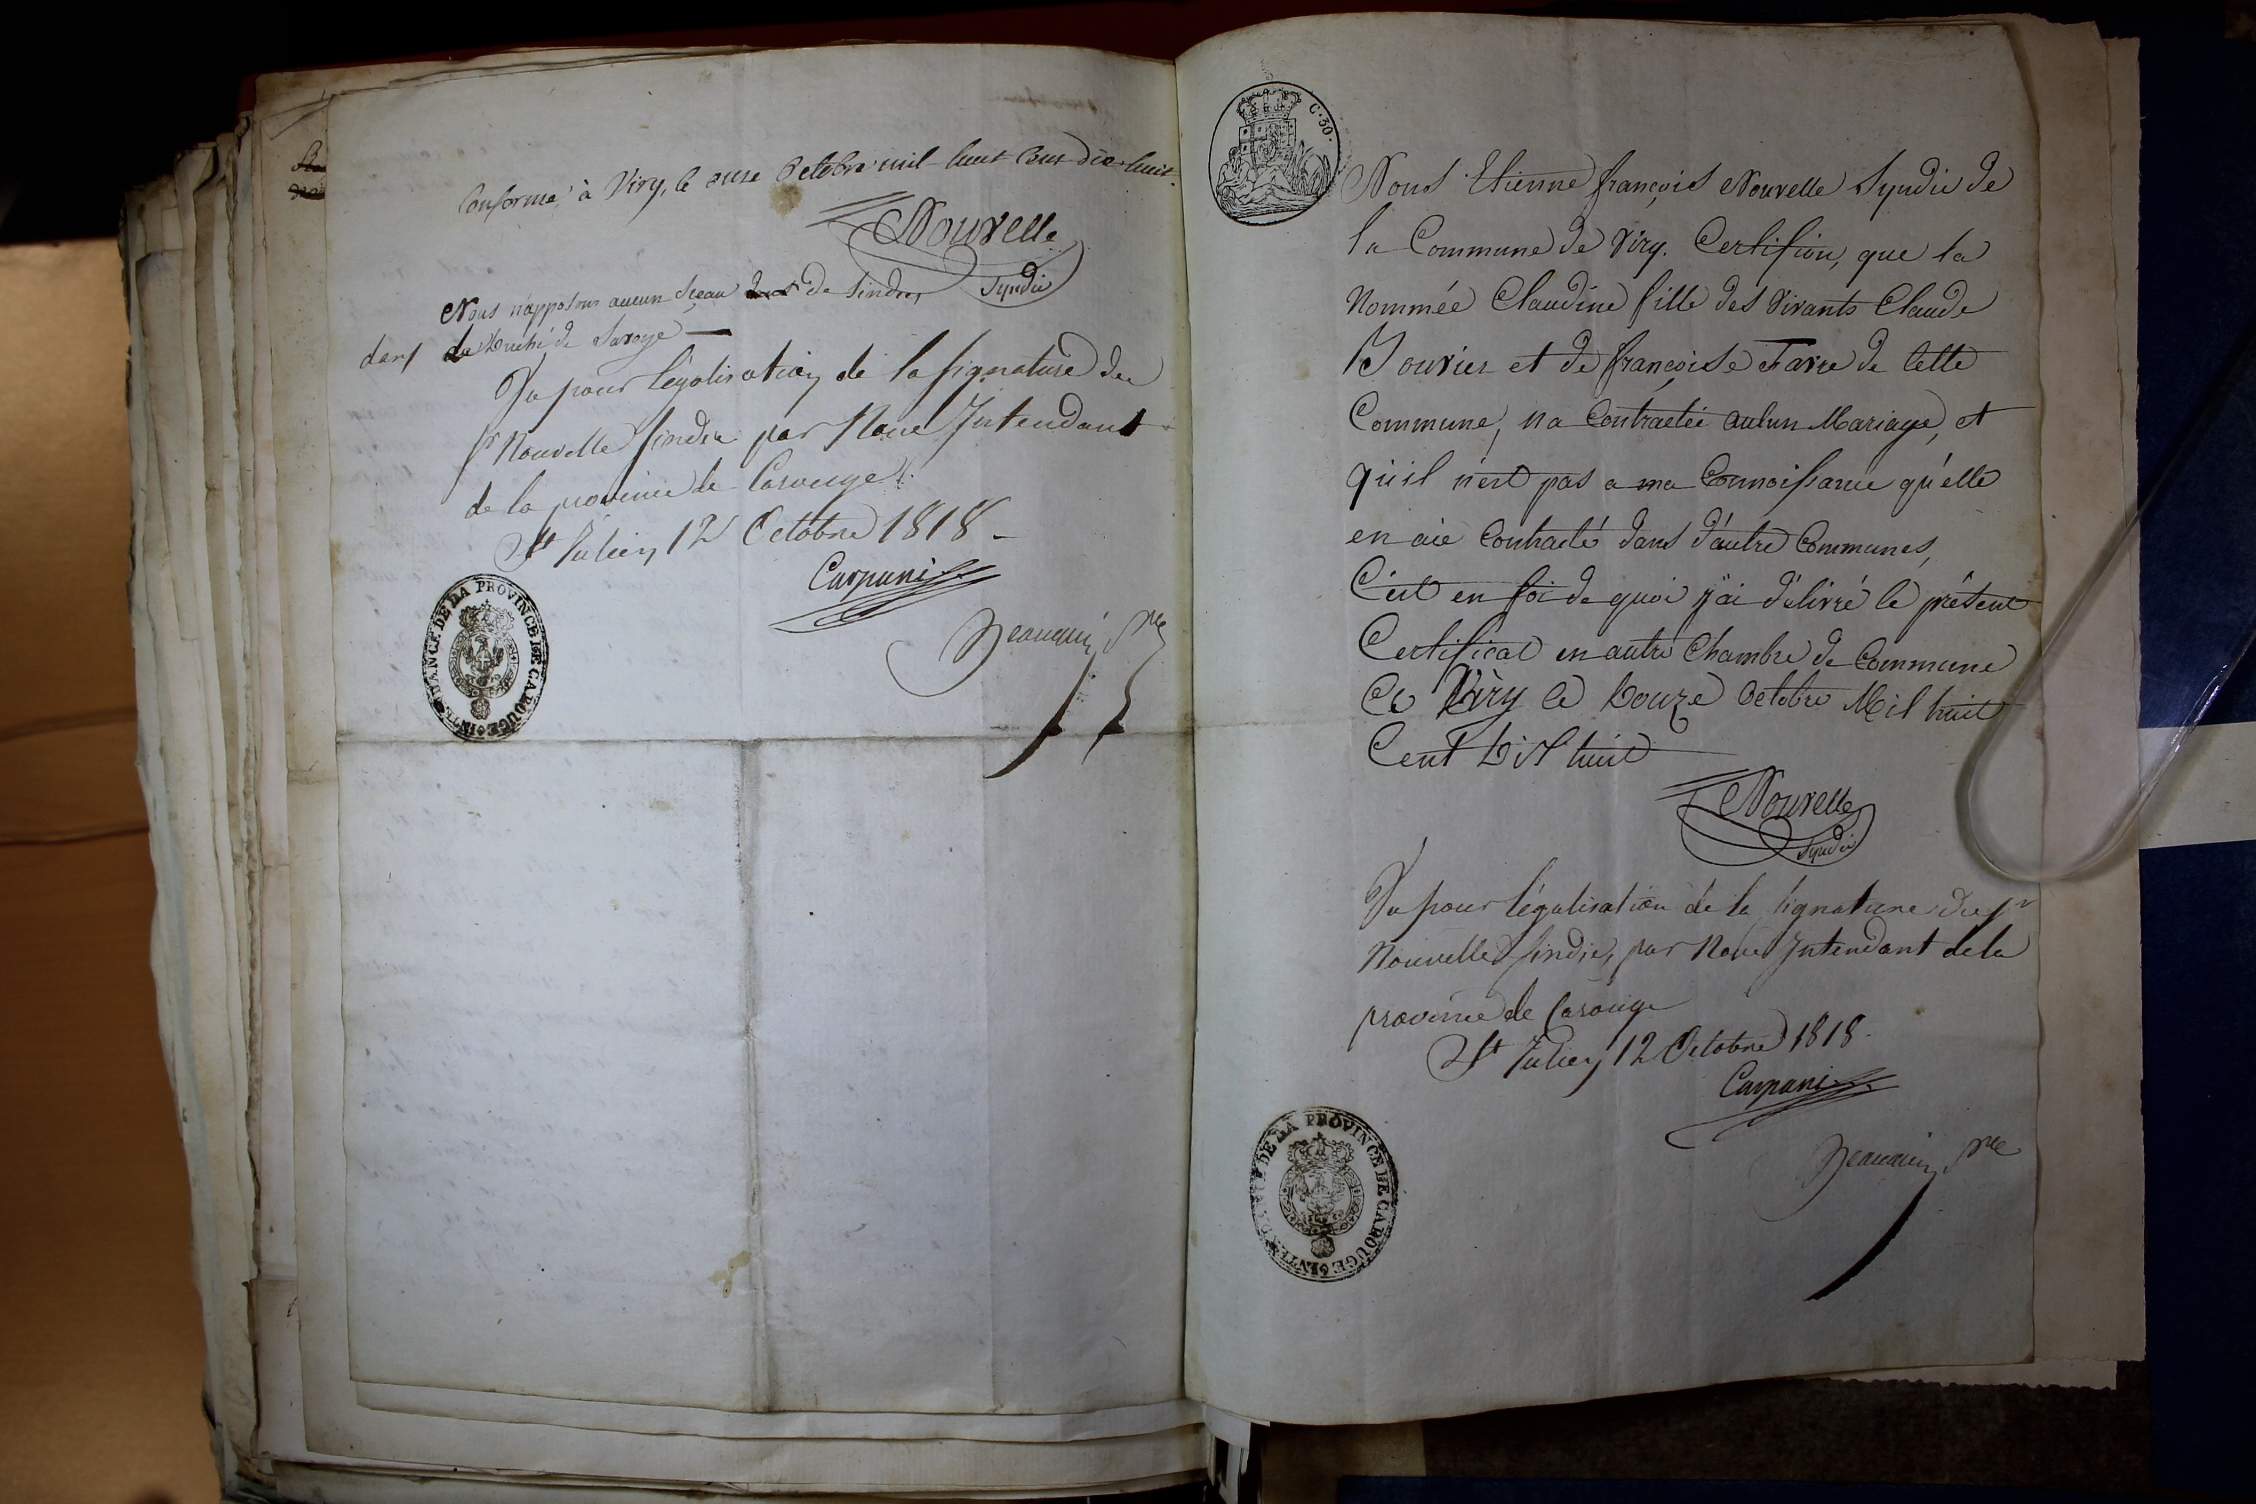 Conforme à Viry, le onze Octobre mil huit Cent dix huit.
Nouvelle
Syndic
Nous n'apposons aucun sceau de Sindic,
dans le Duché de Savoye
Vu pour légalisation de la signature du
Sr Nouvelle Sindic par Nous Intendant
de la province de Carouge.
St Julien 12 Octobre 1818
Carpani
INTENDANCE DE LA PROVINCE DE CAROUGE
C. 30.
Nous Etienne françois Nouvelle Syndic de
la Commune de Viry. Certifion, que la
Nommée Claudine fille des vivants Claude
Bouvier et de françoise Favre de Cette
Commune, na Contractée aucun Mariage, et
quil n'est pas a ma Connoissance qu'elle
en aie Contracté dans d'autre Communes,
C'est en foi de quoi j'ai délivré le présent
Certificat en autre Chambre de Commune
Ce Viry le Douze Octobre Mil huit
Cent Dix huit
Nouvelle
Syndic
Vu pour légalisation de la signature du Sr
Nouvelle Sindic, par Nous Intendant de la
province de Carouge
St Julien 12 Octobre 1818.
Carpani
INTENDANCE DE LA PROVINCE DE CAROUGE